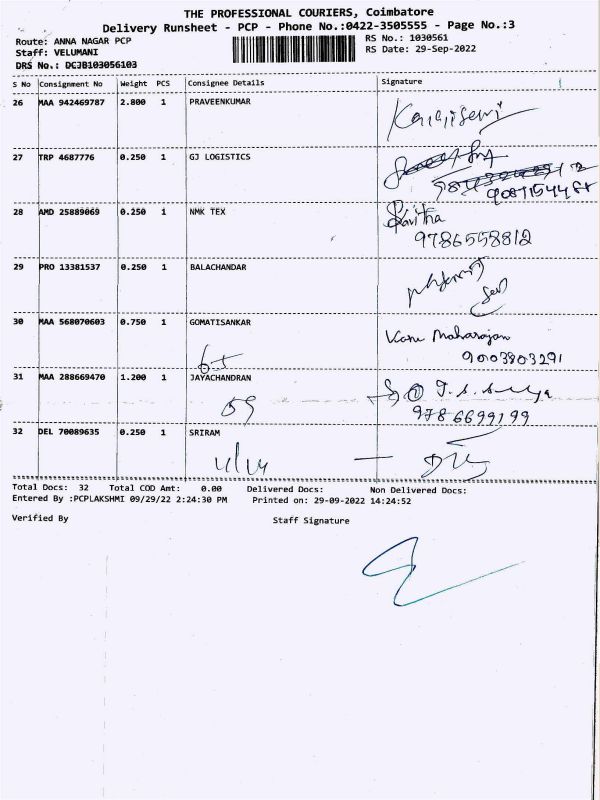 THE PROFESSIONAL COURIERS, Coimbatore
Delivery Runsheet - PCP - Phone No.:0422-3505555 - Page No.:3
Route: ANNA NAGAR PCP
RS No.: 1030561
Staff: VELUMANI
RS Date: 29-Sep-2022
DRS No.: DCJB103056103
S No Consignment No Weight PCS Consignee Details Signature
26 MAA 942469787 2.800 1 PRAVEENKUMAR
27 TRP 4687776 0.250 1 GJ LOGISTICS
28 AMD 25889069 0.250 1 NMK TEX Savitha
9786558812
29 PRO 13381537 0.250 1 BALACHANDAR
30 MAA 568070603 0.750 1 GOMATISANKAR
Maharajan
9003803291
31 MAA 288669470 1.200 1 JAYACHANDRAN
59
9786699199
32 DEL 70089635 0.250 1 SRIRAM
Total Docs: 32 Total COD Amt: 0.00 Delivered Docs: Non Delivered Docs:
Entered By :PCPLAKSHMI 09/29/22 2:24:30 PM Printed on: 29-09-2022 14:24:52
Verified By Staff Signature